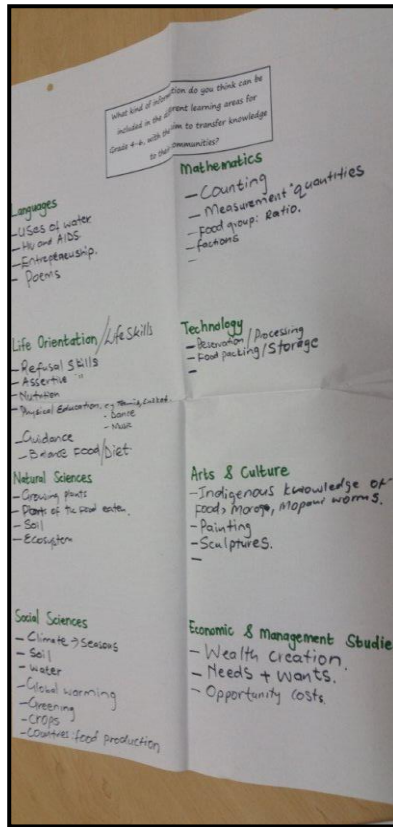 What kind of information do you think can be
included in the different learning areas for
Grade 4-6, with the aim to transfer knowledge
to their communities?
Languages
- Uses of water
- HIV and AIDS.
- Entrepreneurship.
- Poems
Life Orientation / Life Skills
- Refusal Skills
- Assertive "
- Nutrition
- Physical Education, e.g. Tennis, Cricket.
- Dance
- Music
- Guidance
- Balance Food / Diet
Natural Sciences
- Growing plants
- Plants of the food eaten.
- Soil
- Ecosystem
Social Sciences
- Climate → Seasons
- Soil
- Water
- Global worming
- Greening
- Crops
- Countries: food production
Mathematics
- Counting
- Measurement "quantities
- Food group: Ratio.
- factions
-
Technology
- Reservation / Processing
- Food packing / Storage
-
Arts & Culture
- Indigenous knowledge of
food, Morogo, Mopani worms.
- Painting
- Sculptures.
-
Economic & Management Studie
- Wealth Creation.
- Needs + Wants.
- Opportunity costs.